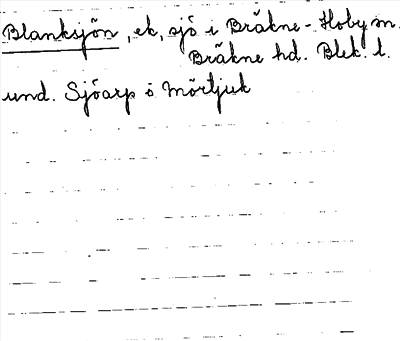 Blanksjön, ek, sjö i Bräkne-Hoby sn.
Bräkne hd. Blek. l.
und. Sjöarp o Mörtjuk